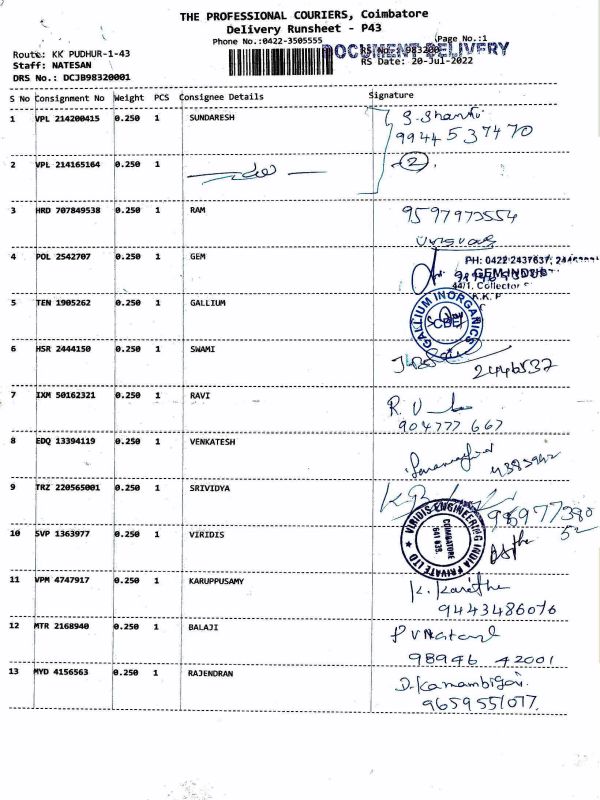 THE PROFESSIONAL COURIERS, Coimbatore
Delivery Runsheet - P43
Phone No.:0422-3505555
Page No.:1
DOCUMENT DELIVERY
Route: KK PUDHUR-1-43
Staff: NATESAN
RS Date: 20-Jul-2022
DRS No.: DCJB98320001
S No Consignment No Weight PCS Consignee Details Signature
1 VPL 214200415 0.250 1 SUNDARESH
S. Shanthi
9944537470
2 VPL 214165164 0.250 1
2
3 HRD 707849538 0.250 1 RAM
9597973554
4 POL 2542707 0.250 1 GEM
PH: 0422 2437637,
GEM INDUS
44/1, Collector
K.K. P
5 TEN 1905262 0.250 1 GALLIUM
GALLIUM INORGANICS
CBE
6 HSR 2444150 0.250 1 SWAMI
2446537
7 IXM 50162321 0.250 1 RAVI
R. U
904777 667
8 EDQ 13394119 0.250 1 VENKATESH
4383942
9 TRZ 220565001 0.250 1 SRIVIDYA
98977380
52
10 SVP 1363977 0.250 1 VIRIDIS
VIRIDIS ENGINEERING INDIA PRIVATE LTD
COIMBATORE
641 038.
11 VPM 4747917 0.250 1 KARUPPUSAMY
K. Karithe
9443486076
12 MTR 2168940 0.250 1 BALAJI
98946 42001
13 MYD 4156563 0.250 1 RAJENDRAN
D. Kanambigai.
9659551077.